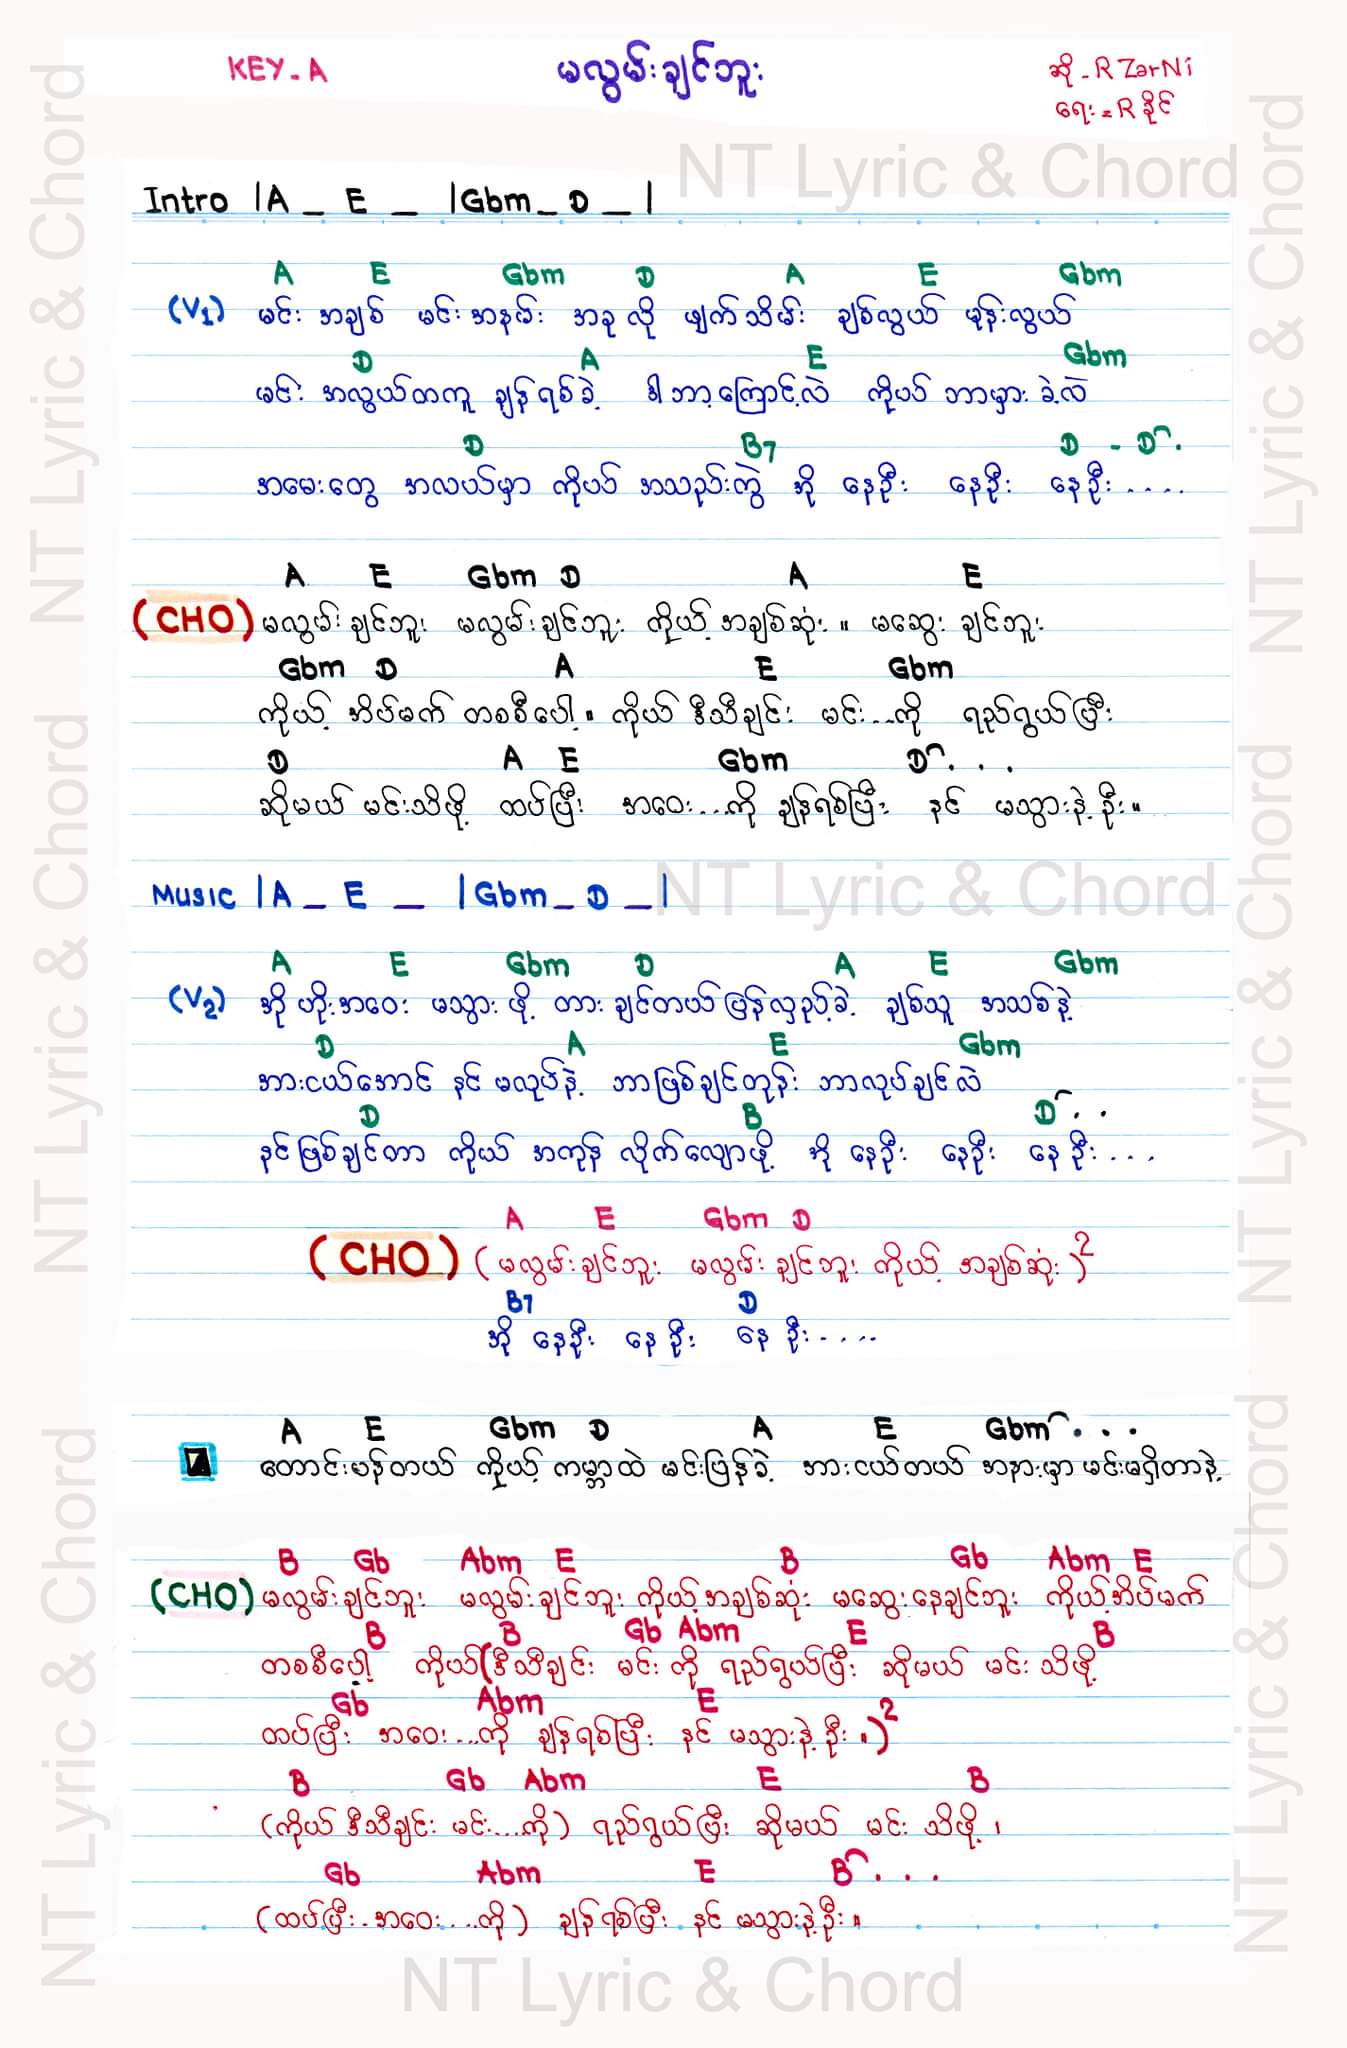 KEY - A
မလွမ်းချင်ဘူး
ဆို - R ZarNi
ရေး = R ခိုင်
NT Lyric & Chord
Intro |A _ E _ |Gbm _ D _ |
A E Gbm D A E Gbm
(V1) မင်း အချစ် မင်း အနမ်း အခု လို ဖျက်သိမ်း ချစ်လွယ် မုန်းလွယ်
D A E Gbm
မင်း အလွယ်တကူ ချန်ရစ်ခဲ့ ဒါဘာ့ကြောင့်လဲ ကိုယ် ဘာမှားခဲ့လဲ
D B7 D - D .
အမေးတွေ အလယ်မှာ ကိုယ် အသည်းကွဲ အို နေဦး နေဦး နေဦး ....
A E Gbm D A E
(CHO) မလွမ်းချင်ဘူး မလွမ်းချင်ဘူး ကိုယ့် အချစ်ဆုံး ။ မဆွေး ချင်ဘူး
Gbm D A E Gbm
ကိုယ့် အိပ်မက် တစစီပေါ့ ။ ကိုယ် ဒီသီချင်း မင်း...ကို ရည်ရွယ်ပြီး
D A E Gbm D . . .
ဆိုမယ် မင်းသိဖို့ ထပ်ပြီး အဝေး...ကို ချန်ရစ်ပြီး နင် မသွားနဲ့ဦး ။
Music |A _ E _ |Gbm _ D _ |
NT Lyric & Chord
A E Gbm D A E Gbm
(V2) အို ဟိုးအဝေး မသွား ဖို့ တားချင်တယ် ပြန်လှည့်ခဲ့ ချစ်သူ အသစ်နဲ့
D A E Gbm
အားငယ်အောင် နင် မလုပ်နဲ့ ဘာဖြစ်ချင်တုန်း ဘာလုပ်ချင်လဲ
D B D . .
နင်ဖြစ်ချင်တာ ကိုယ် အကုန် လိုက်လျောဖို့ အို နေဦး နေဦး နေဦး ....
A E Gbm D
(CHO) (မလွမ်းချင်ဘူး မလွမ်းချင်ဘူး ကိုယ့် အချစ်ဆုံး)2
B7 D
အို နေဦး နေဦး နေဦး ....
A E Gbm D A E Gbm . . .
တောင်းပန်တယ် ကိုယ့် ကမ္ဘာထဲ မင်းပြန်ခဲ့ အားငယ်တယ် အနားမှာ မင်းမရှိတာနဲ့
B Gb Abm E B Gb Abm E
(CHO) မလွမ်းချင်ဘူး မလွမ်းချင်ဘူး ကိုယ့်အချစ်ဆုံး မဆွေးနေချင်ဘူး ကိုယ့်အိပ်မက်
B B Gb Abm E B
တစစီပေါ့ ကိုယ်(ဒီသီချင်း မင်း ကို ရည်ရွယ်ပြီး ဆိုမယ် မင်း သိဖို့
Gb Abm E
တပ်ပြီး အဝေး...ကို ချန်ရစ်ပြီး နင် မသွားနဲ့ဦး ။)2
B Gb Abm E B
(ကိုယ် ဒီသီချင်း မင်း...ကို) ရည်ရွယ်ပြီး ဆိုမယ် မင်း သိဖို့ ၊
Gb Abm E B . . .
(ထပ်ပြီး အဝေး...ကို) ချန်ရစ်ပြီး နင် မသွားနဲ့ဦး ။
NT Lyric & Chord
NT Lyric & Chord
NT Lyric & Chord
NT Lyric & Chord
NT Lyric & Chord
NT Lyric & Chord
NT Lyric & Chord